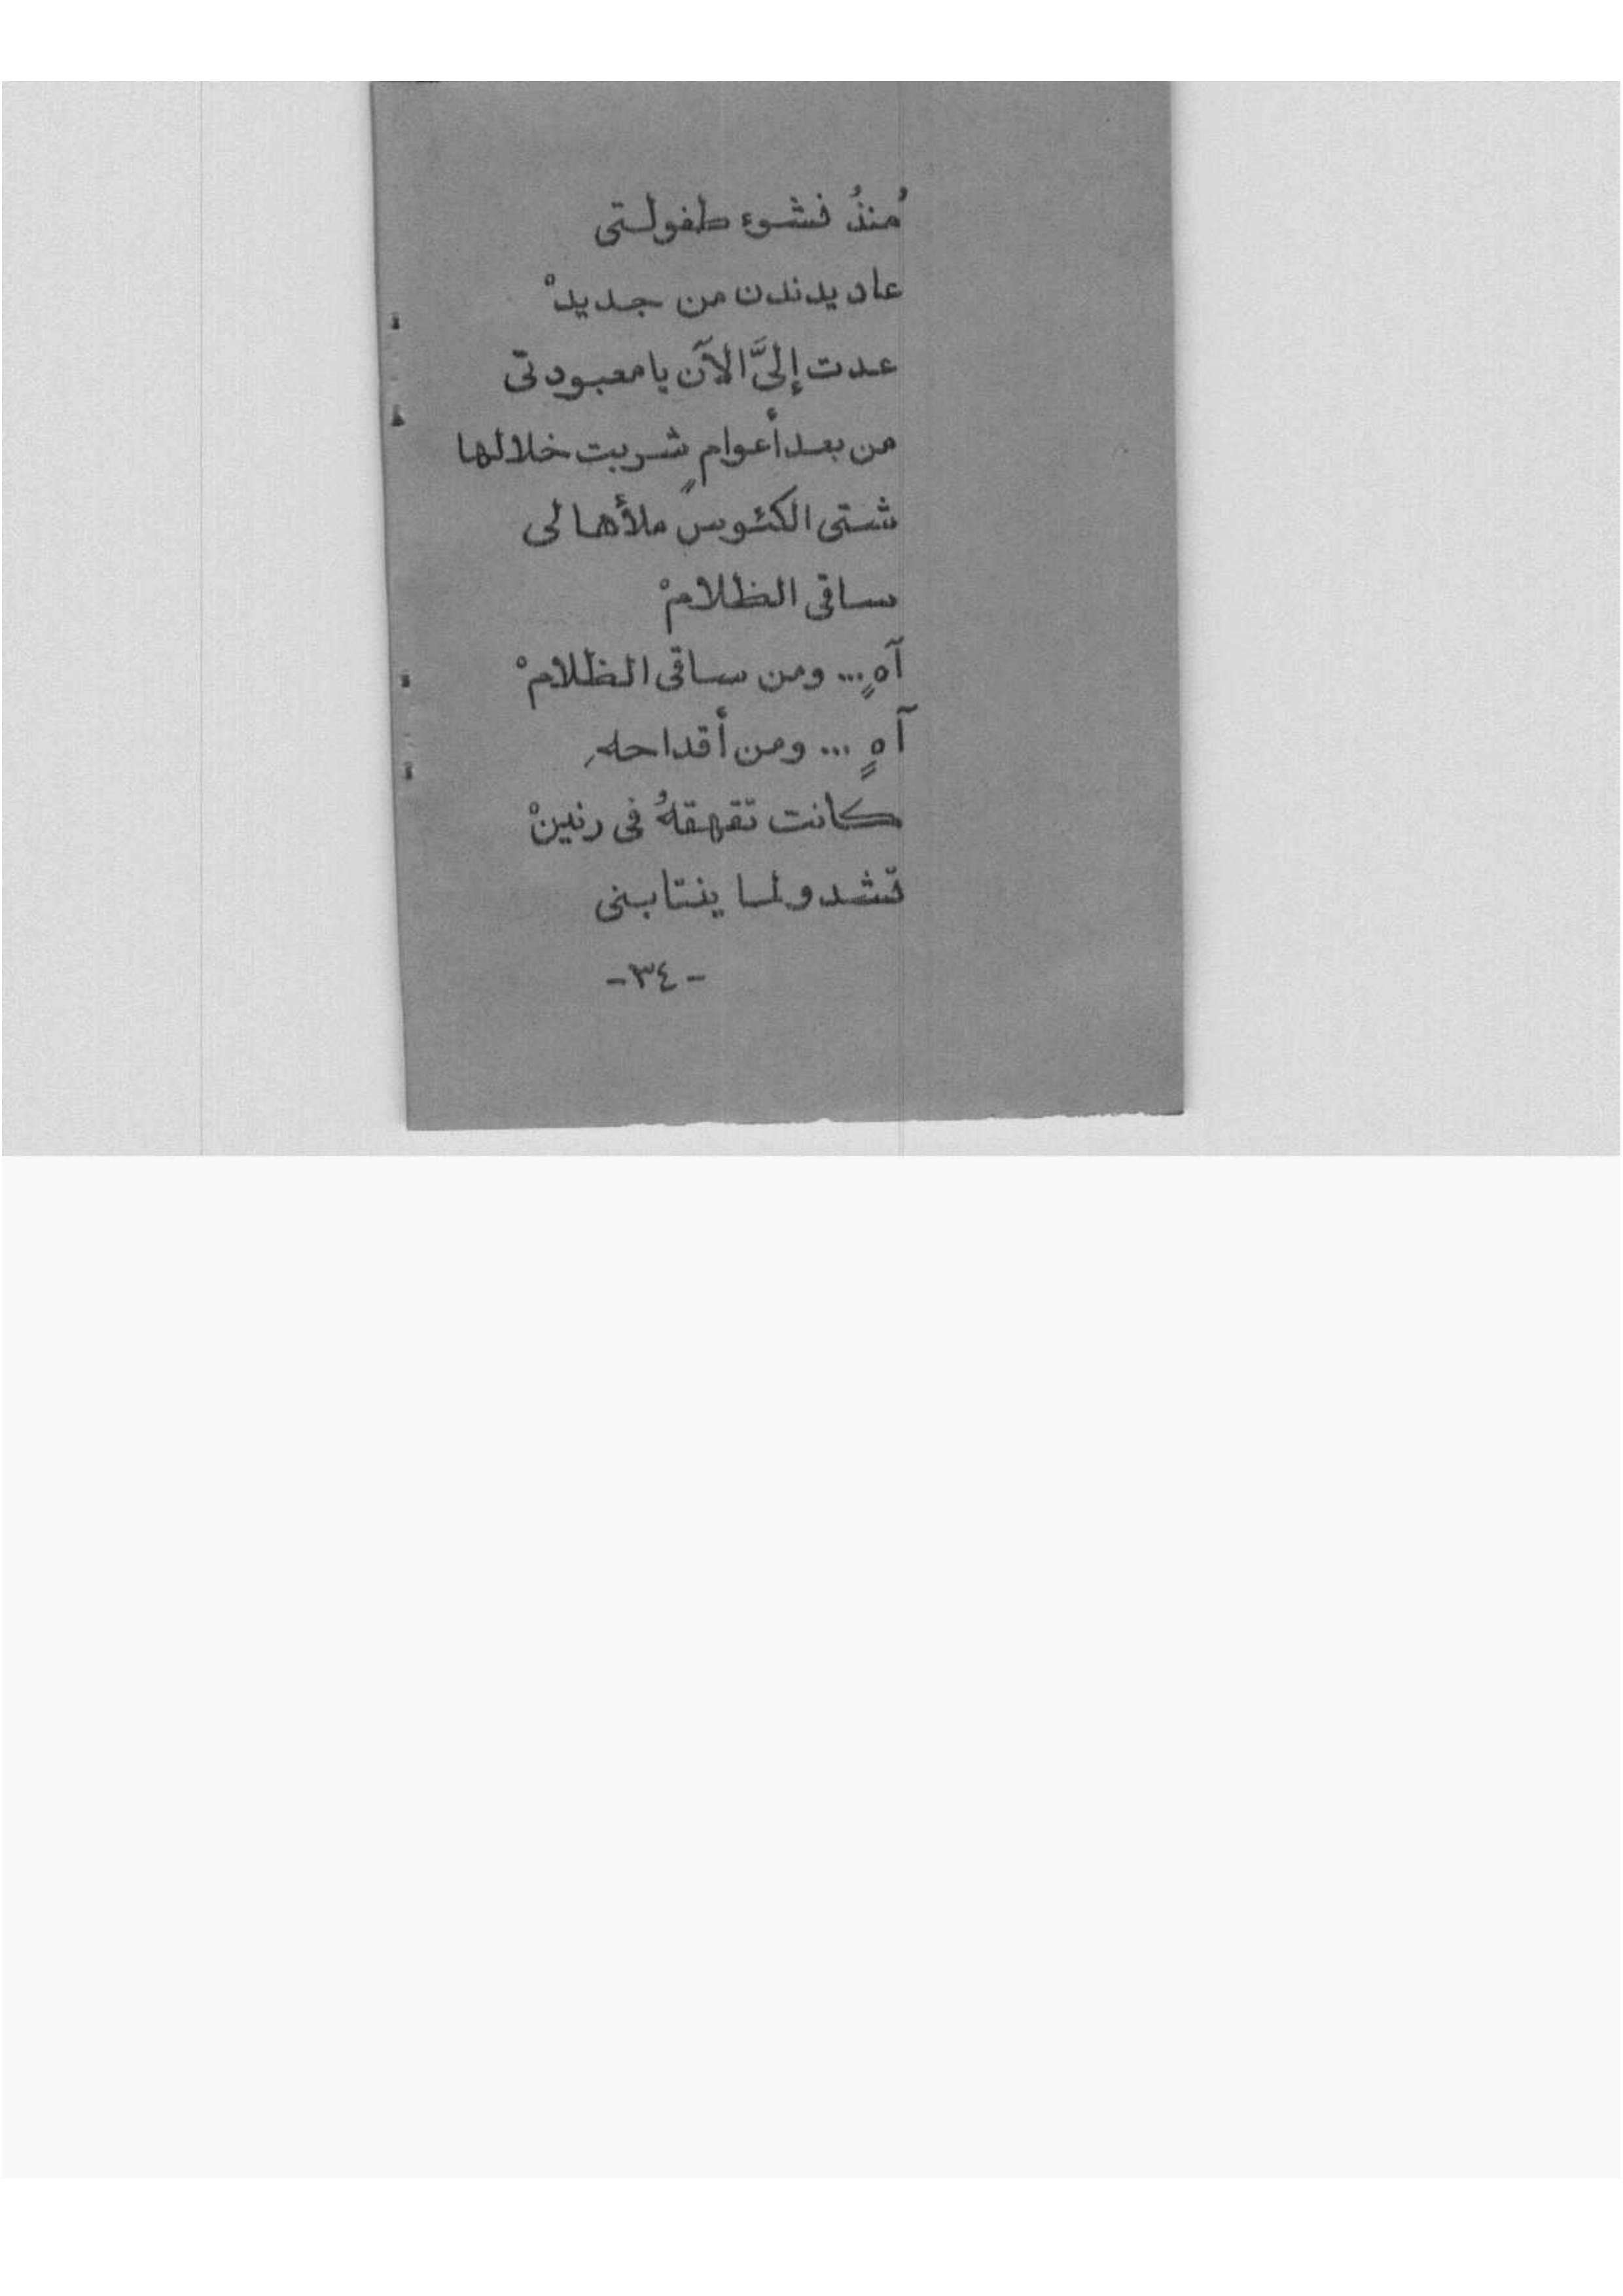 مُنذُ نشوء طفولتى
عاد يدندن من جديدْ
عدت إلىَّ الآن يا معبودتى
من بعد أعوامٍ شربت خلالها
شتى الكئوس ملأها لى
ساقى الظلامْ
آهٍ ... ومن ساقى الظلامْ
آهٍ ... ومن أقداحهِ
كانت تقهقهُ فى رنينْ
تشدو لما ينتابنى
-٣٤-